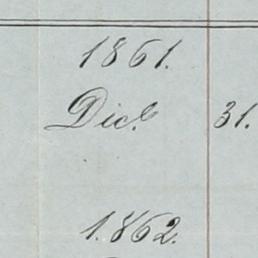 1861.
Dicb. 31.
1.862.